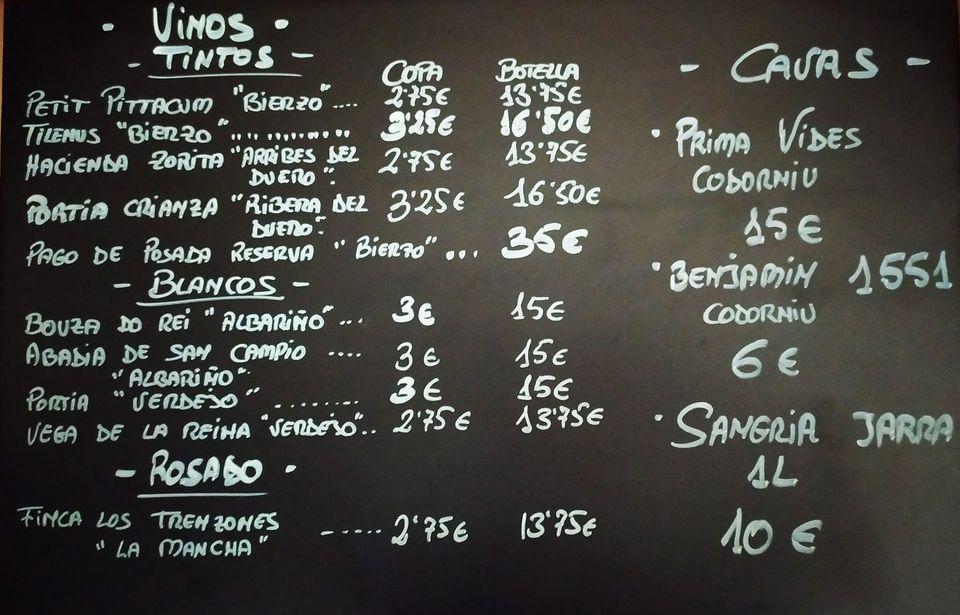 - VINOS -
- TINTOS -
COPA BOTELLA
PETIT PITTACUM "BIERZO".... 2'75€ 13'75€
TILENUS "BIERZO"........... 3'25€ 16'50€
HACIENDA ZORITA "ARRIBES DEL DUERO". 2'75€ 13'75€
PORTIA CRIANZA "RIBERA DEL DUERO". 3'25€ 16'50€
PAGO DE POSADA RESERVA "BIERZO"... 35€
- BLANCOS -
BOUZA DO REI "ALBARIÑO"... 3€ 15€
ABADIA DE SAN CAMPIO .... 3€ 15€
"ALBARIÑO".
PORTIA "VERDEJO" ......... 3€ 15€
VEGA DE LA REINA "VERDEJO".. 2'75€ 13'75€
- ROSADO -
FINCA LOS TRENZONES ...... 2'75€ 13'75€
"LA MANCHA"
- CAVAS -
· PRIMA VIDES
CODORNIU
15€
· BENJAMIN 1551
CODORNIU
6€
· SANGRIA JARRA
1L
10€